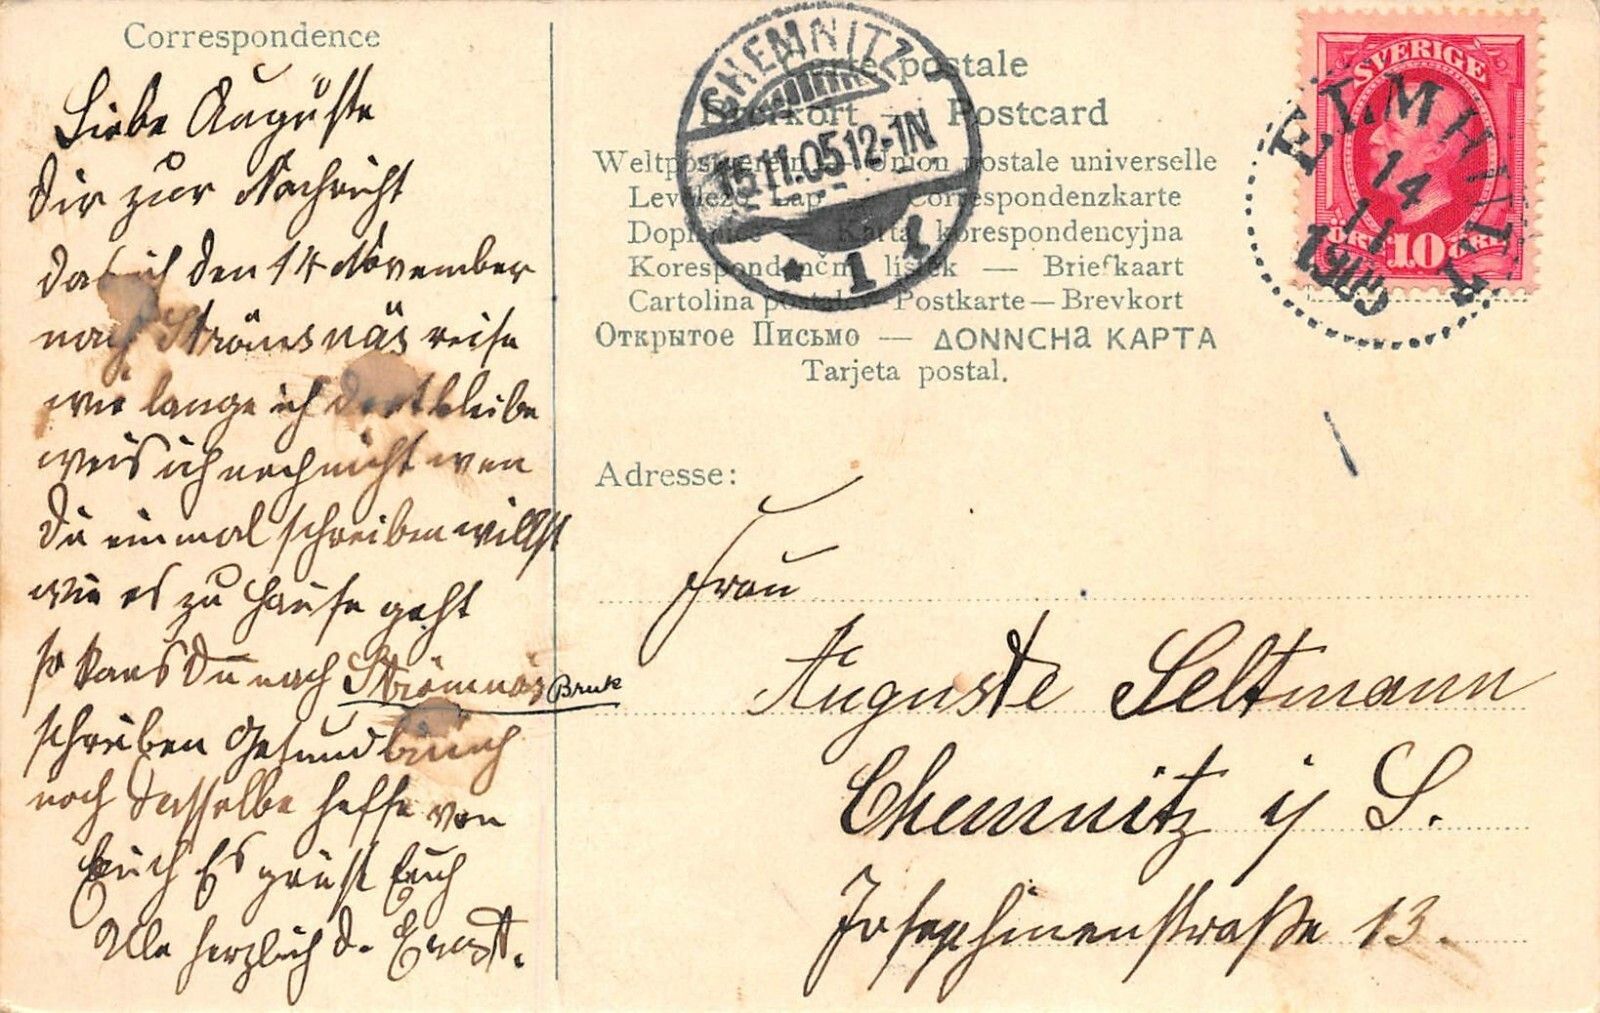 Correspondence
Liebe Auguste
Dir zur Nachricht
das ich den 14 November
nach Strömsnäs reise
wie lange ich dort bleibe
weis ich noch nicht wen
Du einmal schreiben willst
wie es zu Hause geht
so kans Du nach Strömsnäs Bruk
schreiben Gesund bin ich
noch dasselbe hoffe von
Euch Es grüst Euch
Alle herzlich d. Ernst.
Carte postale
Brefkort — Postcard
Weltpostverein — Union postale universelle
Levelező Lap — Correspondenzkarte
Dopisnice — Karta korespondencyjna
Korespondenční lístek — Briefkaart
Cartolina postale — Postkarte — Brevkort
Открытое Письмо — ΔONNCHa KAPTA
Tarjeta postal.
CHEMNITZ
15.11.05 12-1N
* 1
SVERIGE
ÖRE 10 ÖRE
ELMHULT
14
11
1905
Adresse:
Frau
Auguste Seltmann
Chemnitz i/ S.
Josephinenstraße 13.